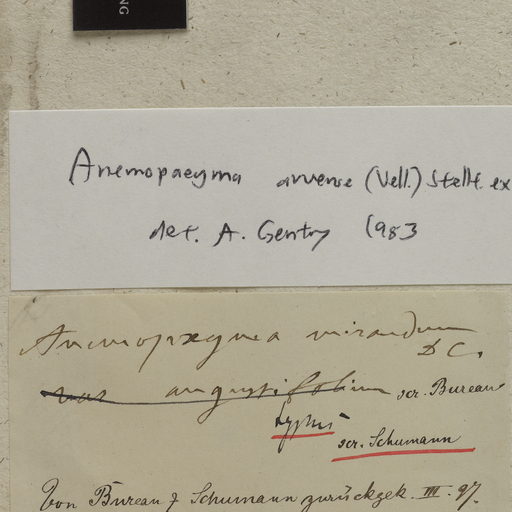 NG
Anemopaegma arvense (Vell.) Stellf. ex
det. A. Gentry 1983
Anemopaegma mirandum
DC.
var angustifolium scr. Bureau
Typus
scr. Schumann
Von Bureau & Schumann zurückgek. III. 97.